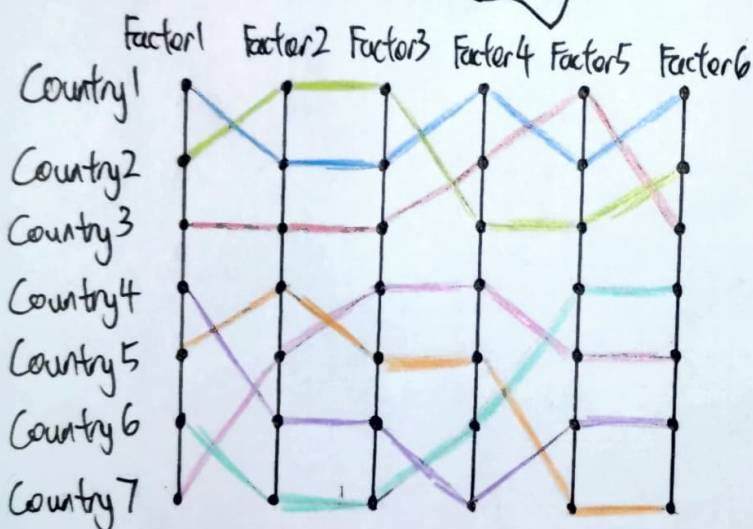 Factor1 Factor2 Factor3 Factor4 Factor5 Factor6
Country1
Country2
Country3
Country4
Country5
Country6
Country7